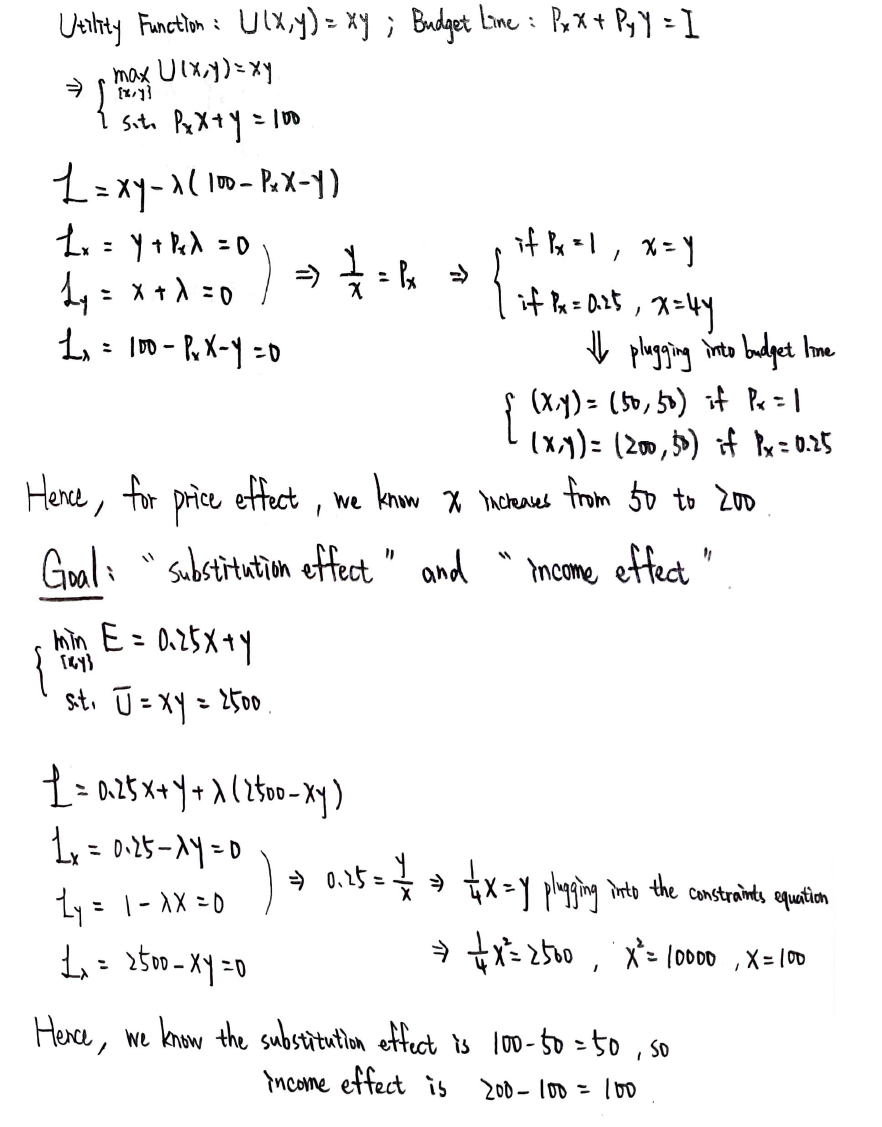 Utility Function : U(x,y) = xy ; Budget Line : PxX + PyY = I
⇒ { max U(x,y) = xy
{x,y}
s.t. PxX + y = 100
L = xy - λ(100 - PxX - y)
Lx = y + Pxλ = 0
Ly = x + λ = 0
⇒ y/x = Px ⇒ { if Px = 1 , x = y
if Px = 0.25 , x = 4y
Lλ = 100 - PxX - y = 0
⇓ plugging into budget line
{ (x,y) = (50, 50) if Px = 1
(x,y) = (200, 50) if Px = 0.25
Hence, for price effect, we know x increases from 50 to 200.
Goal : " substitution effect " and " income effect ".
{ min E = 0.25x + y
{x,y}
s.t. Ū = xy = 2500.
L = 0.25x + y + λ(2500 - xy)
Lx = 0.25 - λy = 0
Ly = 1 - λx = 0
⇒ 0.25 = y/x ⇒ 1/4x = y plugging into the constraints equation
Lλ = 2500 - xy = 0
⇒ 1/4x² = 2500 , x² = 10000 , x = 100
Hence, we know the substitution effect is 100 - 50 = 50 , so
income effect is 200 - 100 = 100.